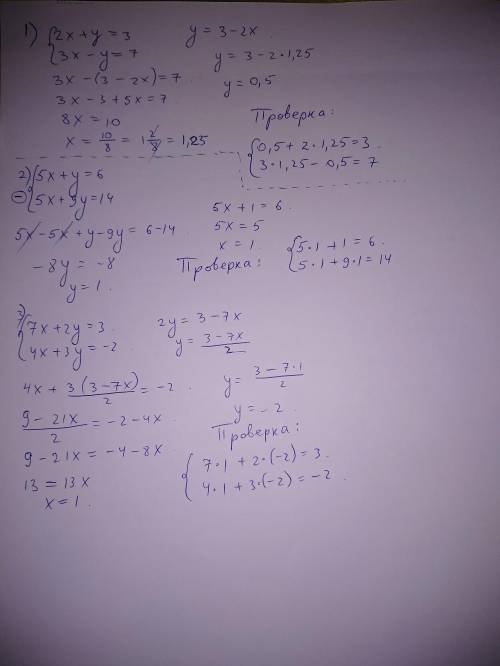 1) {2x + y = 3
3x - y = 7
3x - (3 - 2x) = 7
3x - 3 + 5x = 7
8x = 10
x = 10/8 = 1 2/8 = 1,25
y = 3 - 2x
y = 3 - 2·1,25
y = 0,5
Проверка:
{0,5 + 2·1,25 = 3
3·1,25 - 0,5 = 7
2) {5x + y = 6
⊖ 5x + 9y = 14
5x - 5x + y - 9y = 6 - 14
-8y = -8
y = 1.
5x + 1 = 6
5x = 5
x = 1.
Проверка:
{5·1 + 1 = 6
5·1 + 9·1 = 14
3) {7x + 2y = 3.
4x + 3y = -2
4x + 3(3 - 7x)/2 = -2
9 - 21x/2 = -2 - 4x
9 - 21x = -4 - 8x
13 = 13x
x = 1.
2y = 3 - 7x
y = 3 - 7x/2
y = 3 - 7·1/2
y = -2
Проверка:
{7·1 + 2·(-2) = 3.
4·1 + 3·(-2) = -2